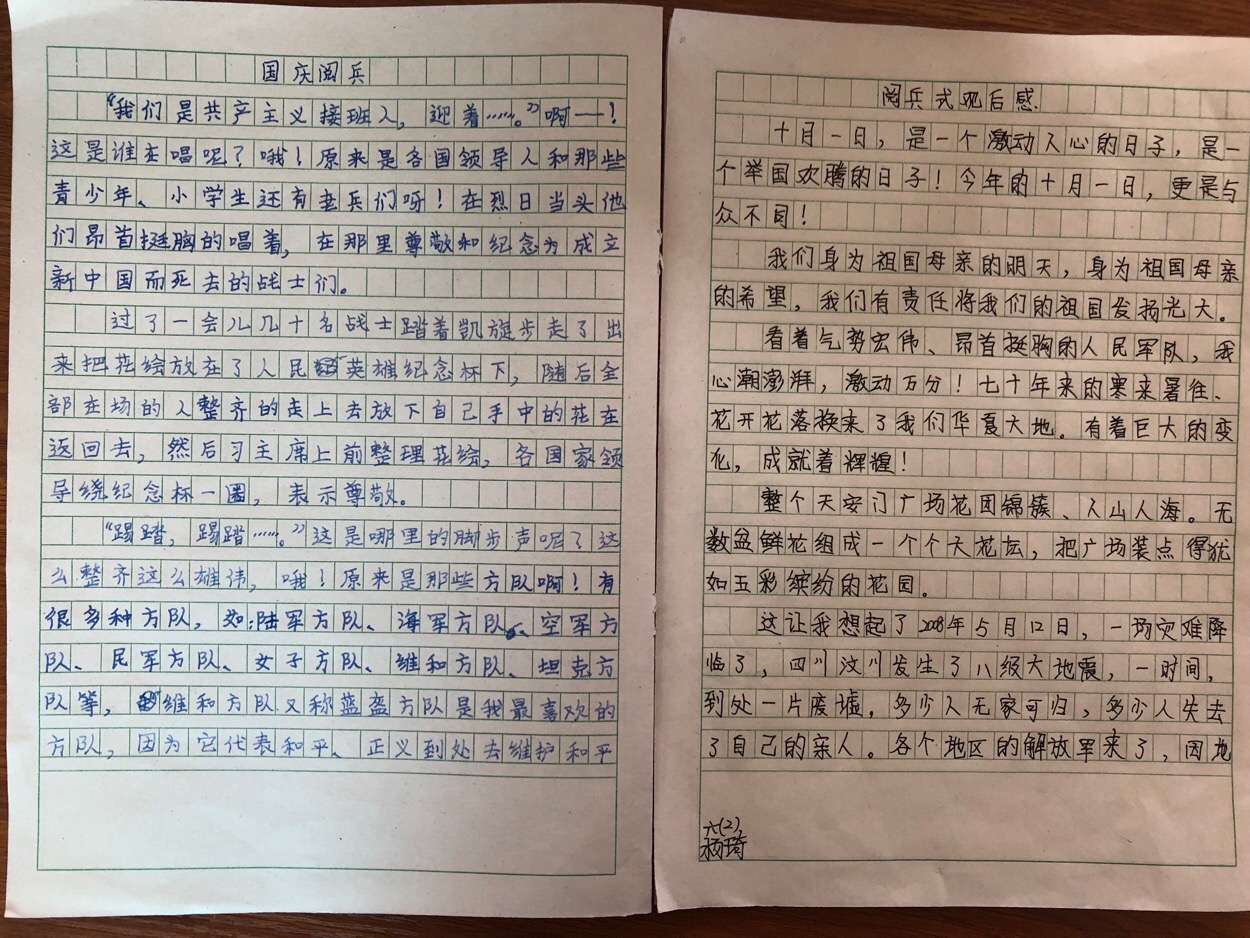 国庆阅兵
“我们是共产主义接班人，迎着……。”啊——！
这是谁在唱呢？哦！原来是各国领导人和那些
青少年、小学生还有老兵们呀！在烈日当头他
们昂首挺胸的唱着，在那里尊敬和纪念为成立
新中国而死去的战士们。
过了一会儿几十名战士踏着凯旋步走了出
来把花绘放在了人民英雄纪念杯下，随后全
部在场的人整齐的走上去放下自己手中的花在
返回去，然后习主席上前整理花绘，各国家领
导绕纪念杯一圈，表示尊敬。
“踢踏，踢踏……。”这是哪里的脚步声呢？这
么整齐这么雄伟，哦！原来是那些方队啊！有
很多种方队，如：陆军方队、海军方队、空军方
队、民军方队、女子方队、维和方队、坦克方
队等，维和方队又称蓝盔方队是我最喜欢的
方队，因为它代表和平、正义到处去维护和平
阅兵式观后感
十月一日，是一个激动人心的日子，是一
个举国欢腾的日子！今年的十月一日，更是与
众不同！
我们身为祖国母亲的明天，身为祖国母亲
的希望，我们有责任将我们的祖国发扬光大。
看着气势宏伟、昂首挺胸的人民军队，我
心潮澎湃，激动万分！七十年来的寒来暑往、
花开花落换来了我们华夏大地。有着巨大的变
化，成就着辉煌！
整个天安门广场花团锦簇、人山人海。无
数盆鲜花组成一个个大花坛，把广场装点得犹
如五彩缤纷的花园。
这让我想起了2008年5月12日，一场灾难降
临了，四川汶川发生了八级大地震，一时间，
到处一片废墟，多少人无家可归，多少人失去
了自己的亲人。各个地区的解放军来了，因地
六(2)
杨琦